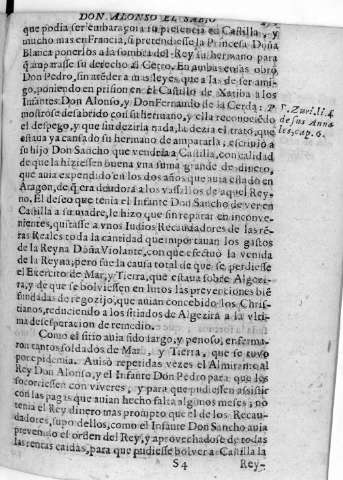 DON ALONSO EL SABIO
que podia ser embaraçosa su presencia en Castilla, y
mucho mas en Francia, si pretendiesse la Princesa Doña
Blanca ponerlos a la sombra del Rey su hermano para
q̃ amparasse su derecho al Cetro. En ambas cosas obrò
Don Pedro, sin atẽder a mas leyes, que a las de ser ami-
go, poniendo en prision en el Castillo de Xatiba a los
Infantes Don Alonso, y Don Fernando de la Cerda: y
mostrose desabrido con su hermano, y ella reconociẽdo
el despego, y que sin dezirla nada, la dezia el trato, que
estaua ya cansado su hermano de ampararla, escriuiò a
su hijo Don Sancho que vendria a Castilla, con calidad
de que la hiziessen buena vna suma grande de dinero,
que auia expendido en los dos años que auia estado en
Aragon, de q̃ era deudora a los vassallos de aquel Rey-
no. El deseo que tenia el Infante Don Sancho de ver en
Castilla a su madre, le hizo que sin reparar en inconve-
nientes, quitasse a vnos Iudios Recaudadores de las rẽ-
tas Reales toda la cantidad que importauan los gastos
de la Reyna Doña Violante, con que efectuò la venida
de la Reyna; pero fue la causa total de que se perdiesse
el Exercito de Mar, y Tierra, que estaua sobre Algezi-
ra, y de que se bolviessen en lutos las prevenciones biẽ
fundadas de regozijo, que auian concebido los Chris-
tianos, reduciendo a los sitiados de Algezira a la vlti-
ma desesperacion de remedio.
Como el sitio auia sido largo, y penoso, enferma-
ron tantos soldados de Mar, y Tierra, que se tuvo
por epidemia. Auisò repetidas vezes el Almirante al
Rey Don Alonso, y el Infante Don Pedro para que los
socorriessen con viveres, y para que pudiessen assistir
con las pagas que auian hecho falta algunos meses; no
tenia el Rey dinero mas prompto que el de los Recau-
dadores, supo dellos, como el Infante Don Sancho auia
prevenido el orden del Rey, y aprovechadose de todas
las rentas caidas, para que pudiesse bolver a Castilla la
S 4 Rey-
Zuri. li. 4
de sus Anna
les, cap. 6.